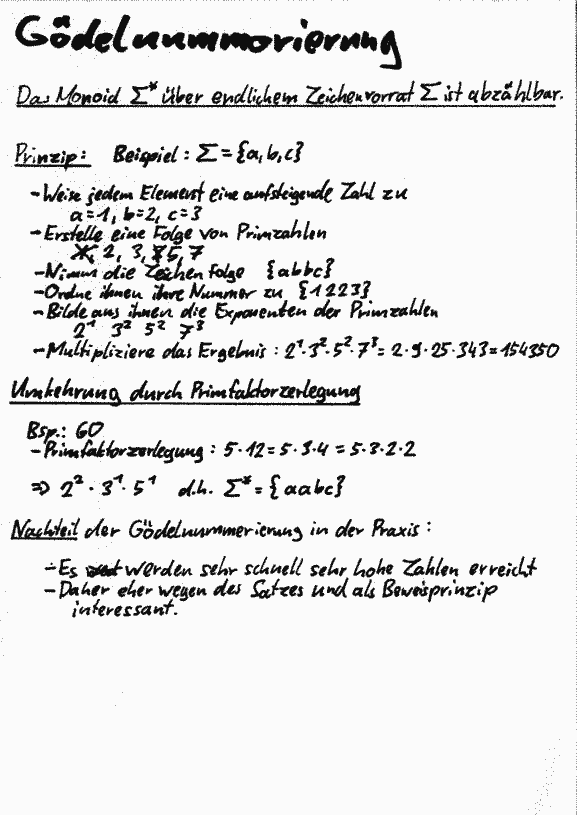 Gödelnummorierung
Das Monoid Σ* über endlichem Zeichenvorrat Σ ist abzählbar.
Prinzip: Beispiel : Σ = {a, b, c}
- Weise jedem Element eine aufsteigende Zahl zu
a=1, b=2, c=3
- Erstelle eine Folge von Primzahlen
2, 3, 5, 7
- Nimm die Zeichenfolge {abbc}
- Ordne ihnen ihre Nummer zu {1223}
- Bilde aus ihnen die Exponenten der Primzahlen
2¹ 3² 5² 7³
- Multipliziere das Ergebnis : 2¹·3²·5²·7³ = 2·9·25·343 = 154350
Umkehrung durch Primfaktorzerlegung
Bsp.: 60
- Primfaktorzerlegung : 5·12 = 5·3·4 = 5·3·2·2
⇒ 2² · 3¹ · 5¹ d.h. Σ* = {aabc}
Nachteil der Gödelnummerierung in der Praxis :
- Es werden sehr schnell sehr hohe Zahlen erreicht
- Daher eher wegen des Satzes und als Beweisprinzip
interessant.